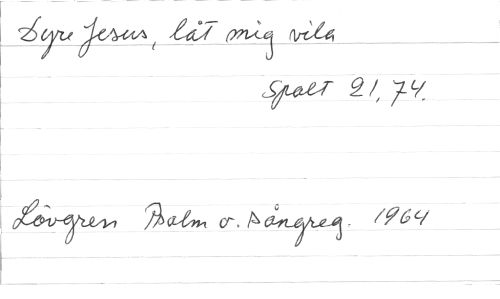 Dyre Jesus, låt mig vila
Spalt 21, 74.
Lövgren Psalm o. sångreg. 1964